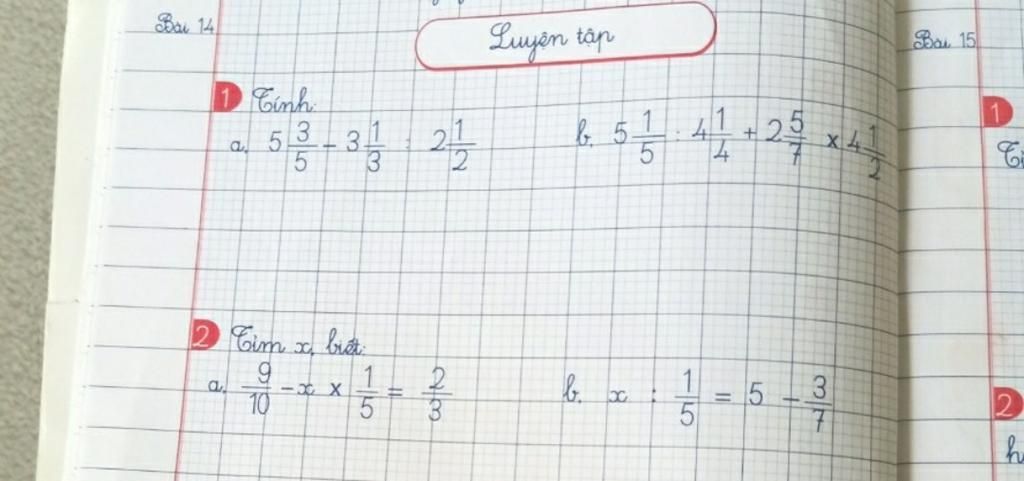 Bài 14
Luyện tập
Bài 15
1 Tính:
a. 5 3/5 - 3 1/3 : 2 1/2
b. 5 1/5 : 4 1/4 + 2 5/7 × 4 1/2
1
2 Tìm x, biết:
a. 9/10 - x × 1/5 = 2/3
b. x : 1/5 = 5 - 3/7
2